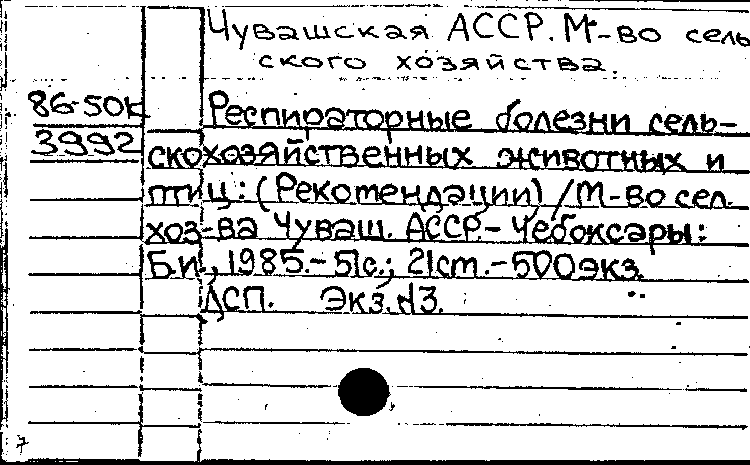 Чувашская АССР. М-во сель
ского хозяйства.
86-50к
3992
Респираторные болезни сель-
скохозяйственных животных и
птиц: (Рекомендации) / М-во сел.
хоз-ва Чуваш. АССР.- Чебоксары:
Б.и., 1985.- 51с.; 21см.- 500экз.
ДСП. Экз.N3.
7